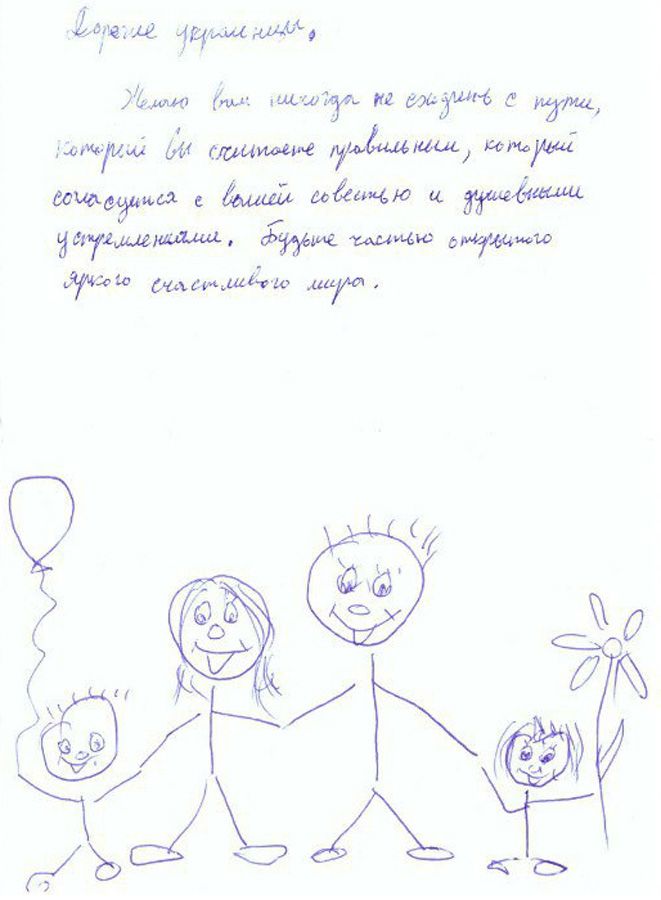 Дорогие украинцы.
Желаю вам никогда не сходить с пути,
который вы считаете правильным, который
согласуется с вашей совестью и душевными
устремлениями. Будьте частью открытого
яркого счастливого мира.